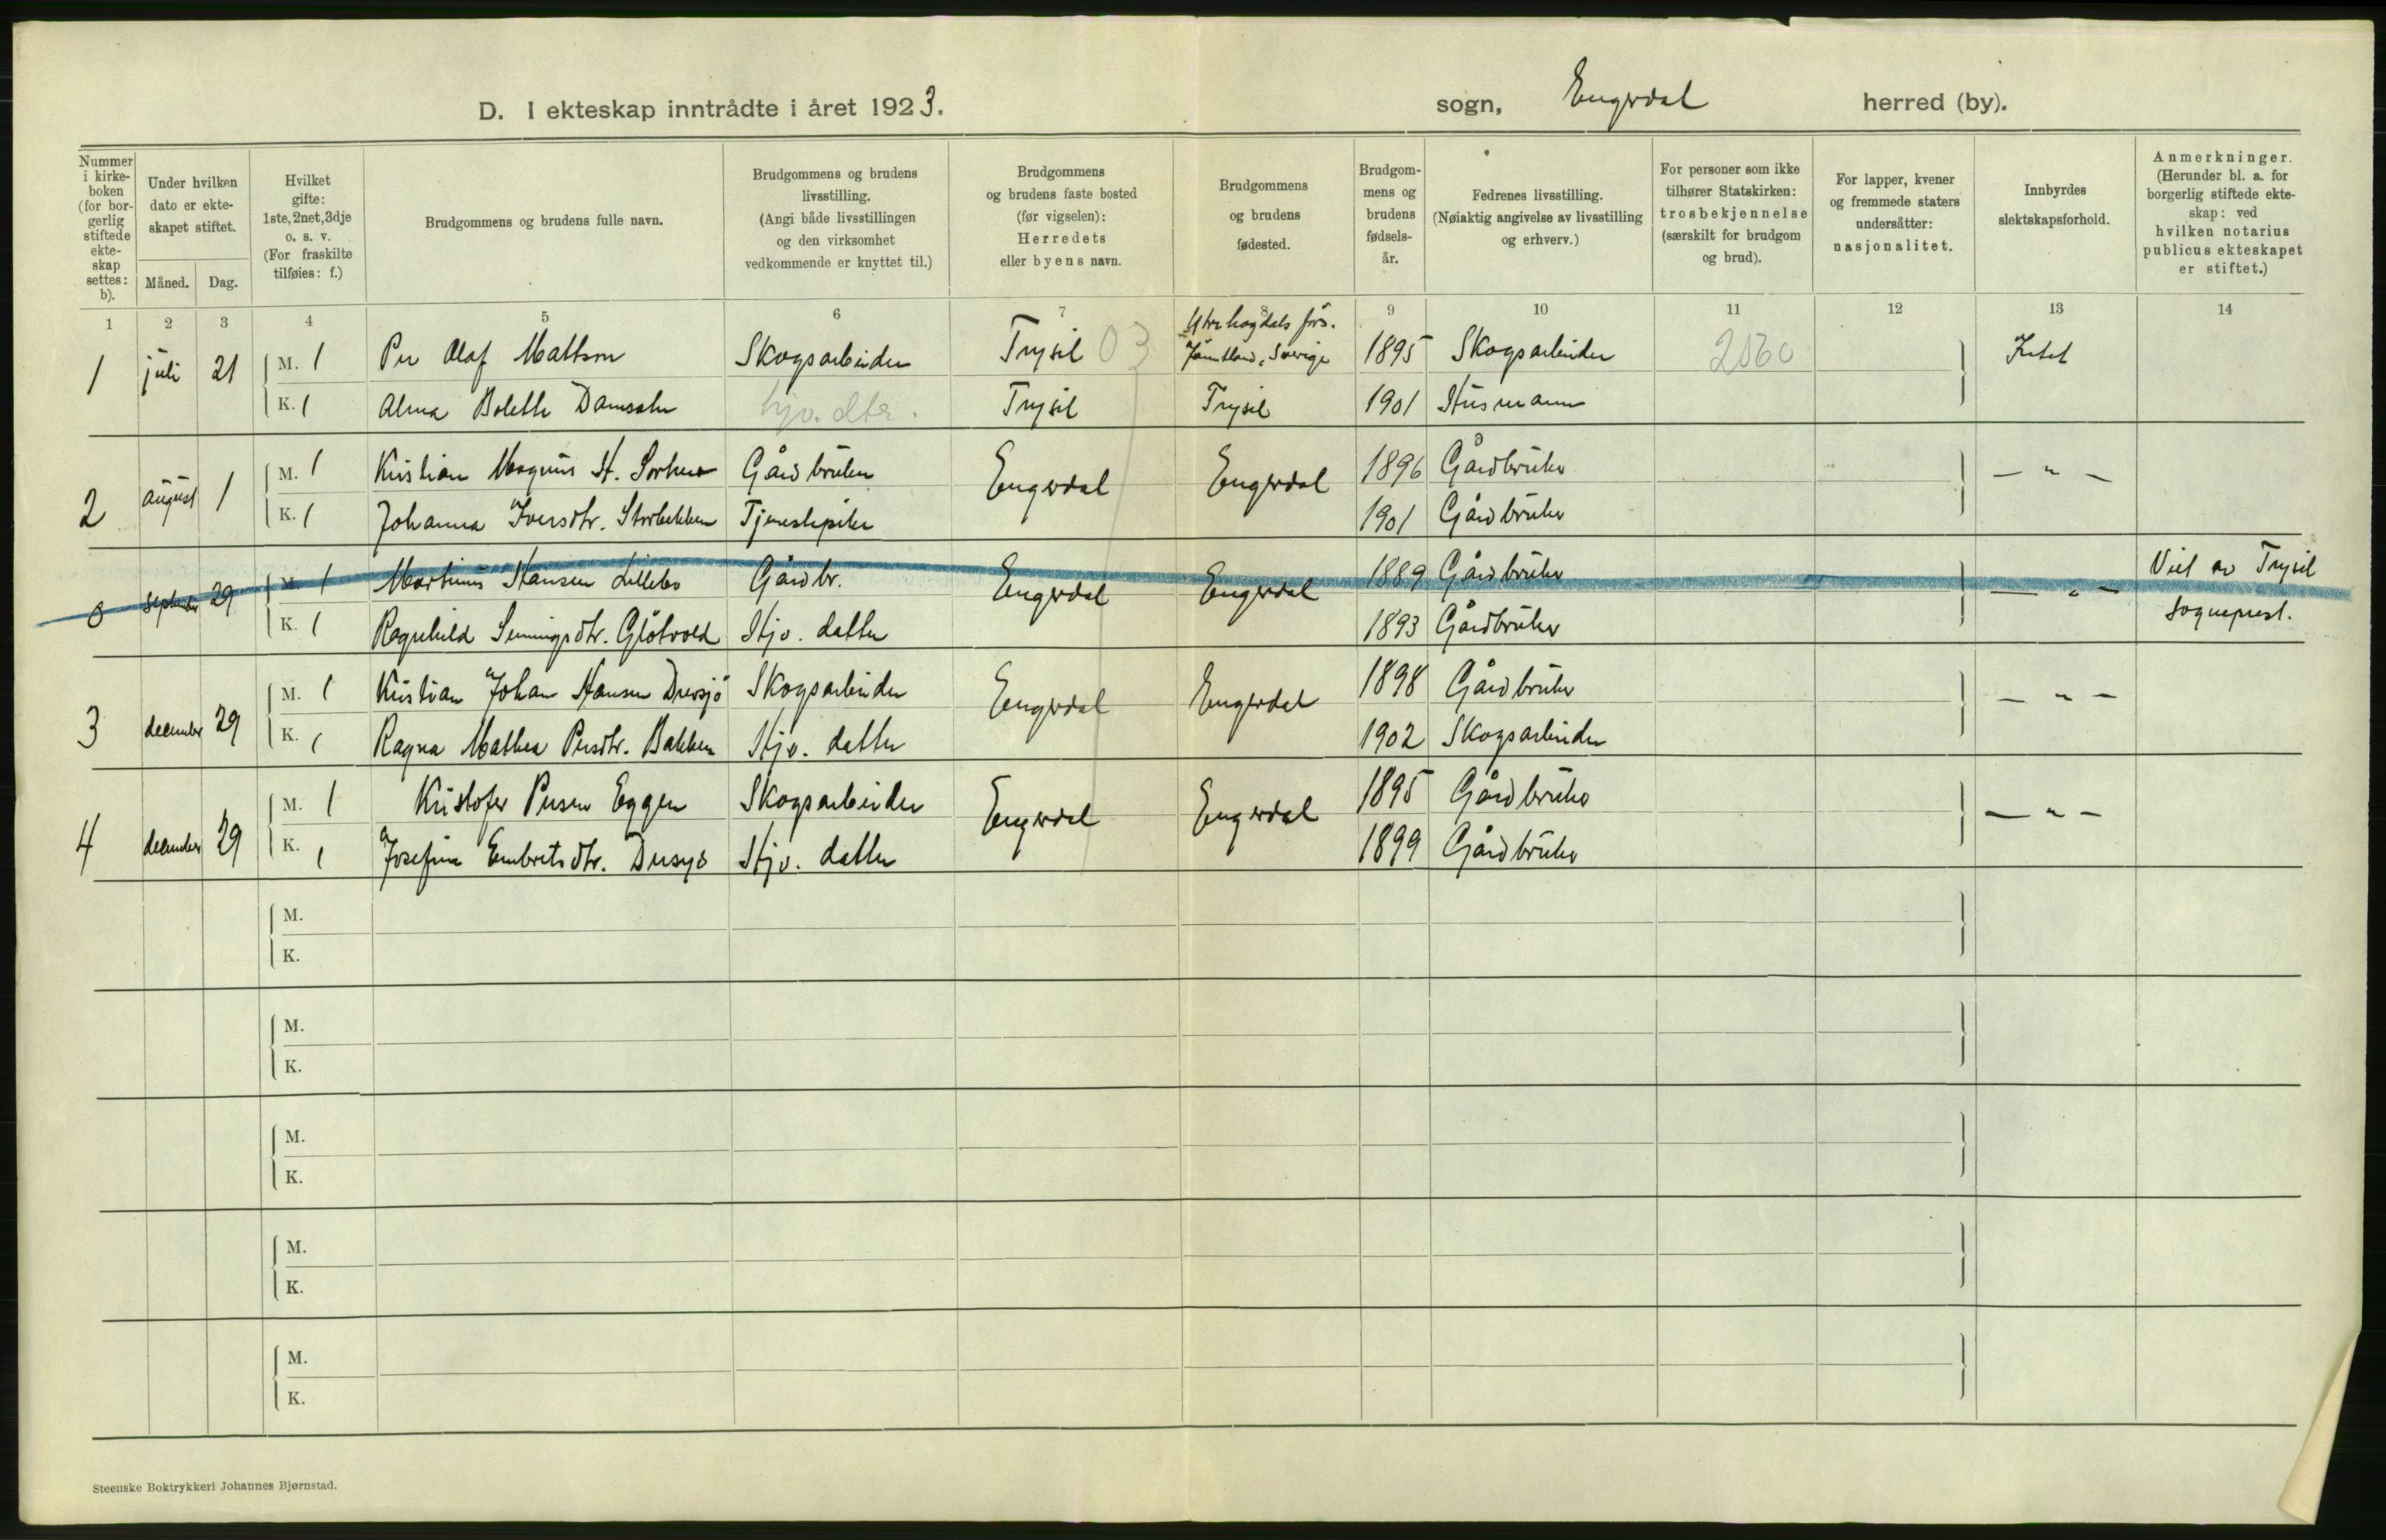 D. I ekteskap inntrådte i året 1923.
sogn, Engerdal herred (by).
Nummer i kirkeboken (for borgerlig stiftede ekteskap settes: b).
Under hvilken dato er ekteskapet stiftet.
Måned. Dag.
Hvilket gifte: 1ste, 2net, 3dje o. s. v. (For fraskilte tilføies: f.)
Brudgommens og brudens fulle navn.
Brudgommens og brudens livsstilling. (Angi både livsstillingen og den virksomhet vedkommende er knyttet til.)
Brudgommens og brudens faste bosted (før vigselen): Herredets eller byens navn.
Brudgommens og brudens fødested.
Brudgommens og brudens fødselsår.
Fedrenes livsstilling. (Nøiaktig angivelse av livsstilling og erhverv.)
For personer som ikke tilhører Statskirken: trosbekjennelse (særskilt for brudgom og brud).
For lapper, kvener og fremmede staters undersåtter: nasjonalitet.
Innbyrdes slektskapsforhold.
Anmerkninger. (Herunder bl. a. for borgerlig stiftede ekteskap: ved hvilken notarius publicus ekteskapet er stiftet.)
1 2 3 4 5 6 7 8 9 10 11 12 13 14
1 juli 21 M. 1 Per Olaf Mattson Skogsarbeider Trysil 03 Utrehogdals förs. Jämtland, Sverige 1895 Skogsarbeider 2060 Intet
K. 1 Alma Bolette Trysil Trysil 1901 Husmann
hjv. dtr.
2 august 1 M. 1 Kristian Magnus H. Sorhus Gårdbruker Engerdal Engerdal 1896 Gårdbruker — " —
K. 1 Johanna Iversdtr. Storbekken Tjenestepike 1901 Gårdbruker
0 september 29 M. 1 Martinus Hansen Lillebo Gårdbr. Engerdal Engerdal 1889 Gårdbruker — " — Viet av Trysil
K. 1 Ragnhild Gløtvold Hjv. datter 1893 Gårdbruker sogneprest.
3 december 29 M. 1 Kristian Johan Hansen Drevsjø Skogsarbeider Engerdal Engerdal 1898 Gårdbruker — " —
K. 1 Ragna Mathea Persdtr. Bakken Hjv. datter 1902 Skogsarbeider
4 december 29 M. 1 Kristofer Persen Eggen Skogsarbeider Engerdal Engerdal 1895 Gårdbruker — " —
K. 1 Josefine Embretsdtr. Drevsjø Hjv. datter 1899 Gårdbruker
M.
K.
M.
K.
M.
K.
M.
K.
M.
K.
Steenske Boktrykkeri Johannes Bjørnstad.